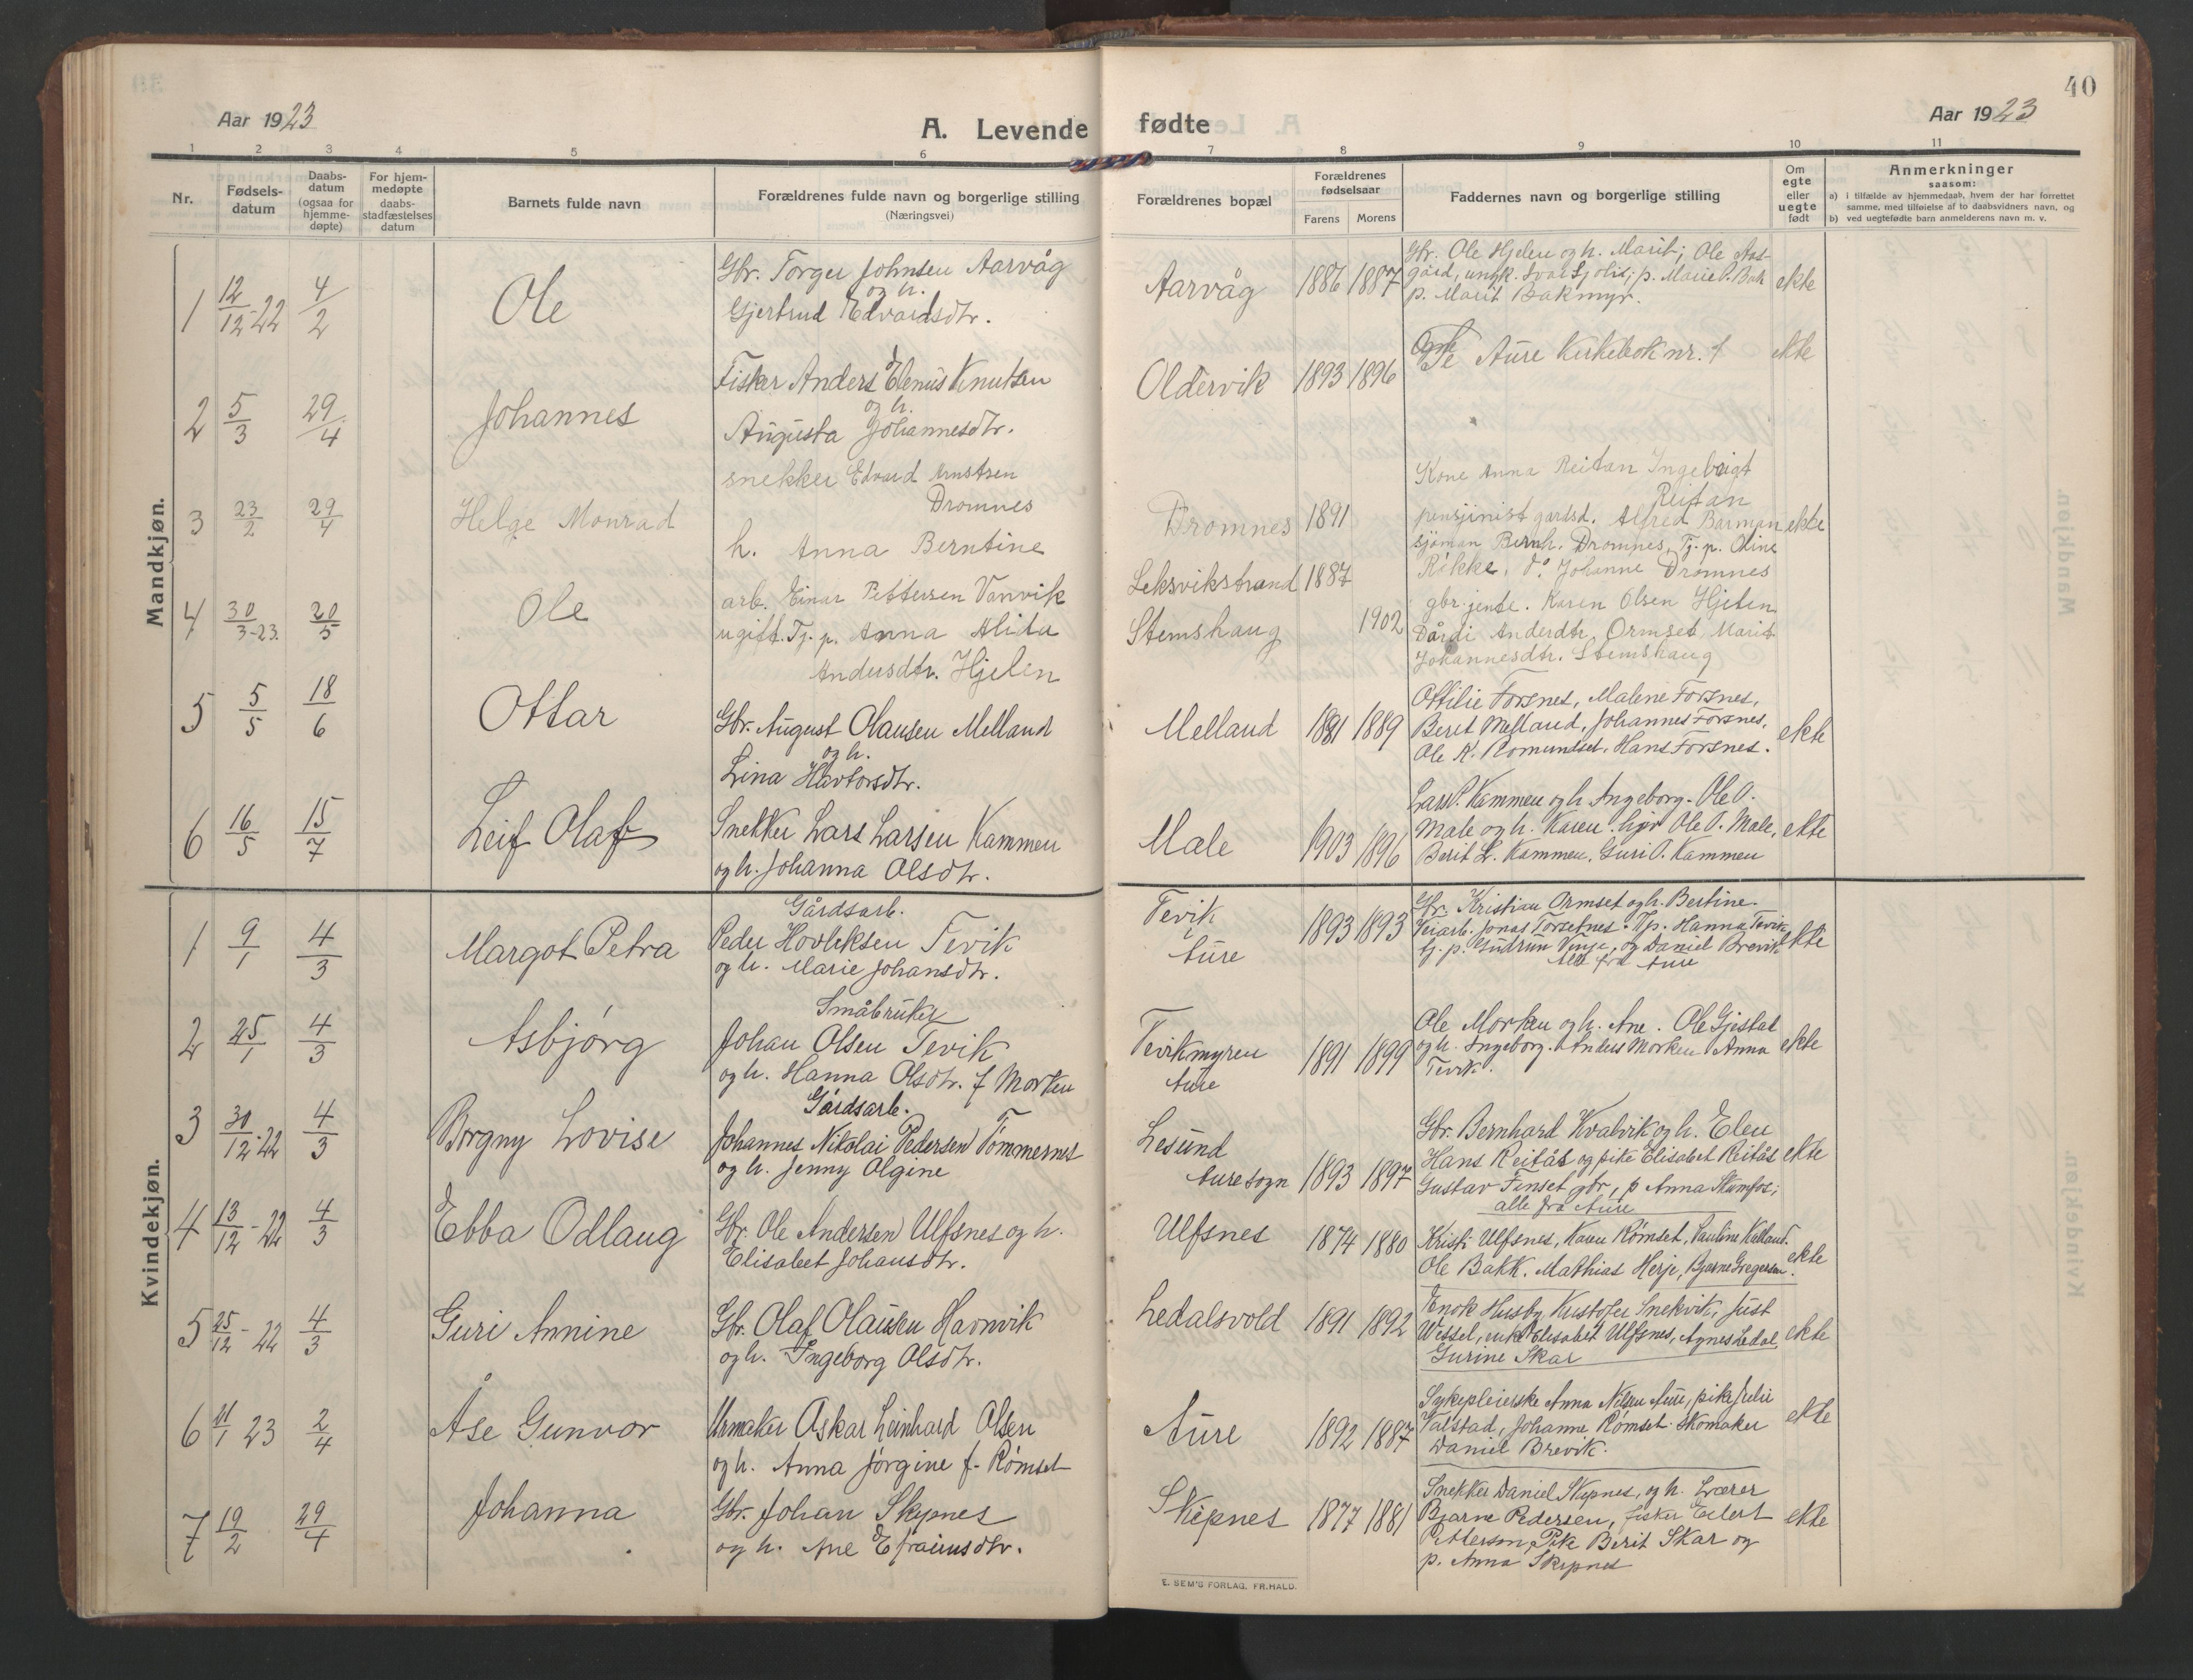 40
Aar 1923
A. Levende fødte
Aar 1923
1 2 3 4 5 6 7 8 9 10 11
Nr.
Fødsels-
datum
Daabs-
datum
(ogsaa for
hjemme-
døpte)
For hjem-
medøpte
daabs-
stadfæstelses
datum
Barnets fulde navn
Forældrenes fulde navn og borgerlige stilling
(Næringsvei)
Forældrenes bopæl
Forældrenes
fødselsaar
Farens
Morens
Faddernes navn og borgerlige stilling
Om
egte
eller
uegte
født
Anmerkninger
saasom:
a) i tilfælde av hjemmedaab, hvem der har forrettet
samme, med tilføielse af to daabsvidners navn, og
b) ved uegtefødte barn anmelderens navn m. v.
Mandkjøn.
1 12/12-22 4/2 Ole
Gbr. Torger Johnsen Aarvåg
og h.
Gjertrud Edvardsdtr.
Aarvåg 1886 1887
Gbr. Ole Hjelen og h. Marit; Ole Aas-
gård, ungk. Ivar Sjølis; p. Marie O. Bak
p. Marit Bakmyr.
ekte
2 5/3 29/4 Johannes
Fisker Anders Elenius Knutsen
og h.
Augusta Johannesdtr.
Oldervik 1893 1896
Se Aure Kirkebok nr. 1
ekte
3 23/2 29/4 Helge Monrad
snekker Edvard Knutsen
Dromnes
h. Anna Berntine
Dromnes 1891
Leksvikstrand 1887
Kone Anna Reitan Ingebrigt
Reitan
pensjinist gardsd. Alfred Barman
sjøman Bernh. Dromnes, Tj. p. Oline
Rikke, do Johanne Dromnes
ekte
4 30/3-23. 20/5 Ole
arb. Einar Pettersen Vanvik
ugift. Tj. p. Anna Alida
Andersdtr. Hjelen
Stemshaug 1902
gbr. jente. Karen Olsen Hjelen
Dårdi Anderdtr. Ormset Marit
Johannesdtr. Stemshaug
5 5/5 18/6 Ottar
Gbr. August Olausen Melland
og h.
Lina Havtorsdtr.
Melland 1881 1889
Ottilie Forsnes, Malene Forsnes,
Beret Melland, Johannes Forsnes,
Ole K. Romundset, Hans Forsnes.
ekte
6 16/5 15/7 Leif Olaf
Snekker Lars Larsen Kammen
og h. Johanna Olsdtr.
Male 1903 1896
Lars P. Kammen og h. Ingeborg - Ole O.
Male og h. Karen. Ole O. Male,
Berit L. Kammen, Guri O. Kammen
ekte
Kvindekjøn.
1 9/1 4/3 Margot Petra
Gårdsarb.
Peder Hovleksen Tevik
og h. Marie Johansdtr.
Tevik
Aure
1893 1893
Gbr. Kristian Ormset og h. Bertine.
Veiarb. Jonas Torsetnes. Hanna Tevik
tj. p. Gudrun Vinje, og Daniel Brevik
Alle fra Aure
ekte
2 25/1 4/3 Asbjørg
Småbruker
Johan Olsen Tevik
og h. Hanna Olsdtr. f Morken
Tevikmyren
Aure
1891 1899
Ole Morken og h. Ane. Ole Gjestad
og h. Ingeborg. Anders Morken Anna
Tevik.
ekte
3 30/12-22 4/3 Borgny Lovise
Gårdsarb.
Johannes Nikolai Pedersen Tømmernes
og h. Jenny Olgine
Lesund
Aure sogn 1893 1897
Gbr. Bernhard Kvalvik og h. Elen
Hans Reitås og pike Elisabet Reitås
Gustav Finset gbr, p Anna
alle fra Aure
ekte
4 13/12-22 4/3 Ebba Odlaug
Gbr. Ole Andersen Ulfsnes og h.
Elisabet Johansdtr.
Ulfsnes 1874 1880
Kristi Ulfsnes, Karen Rømset, Pauline
Ole Bakk. Mathias Herje, Bjarne Gregersen.
ekte
5 25/12-22 4/3 Guri Annine
Gbr. Olaf Olausen Havnvik
og h. Ingeborg Olsdtr.
Ledalsvold 1891 1892
Enok Husby, Kristofer Snekvik, Just
Wessel, enke Elisabet Ulfsnes, Agnes Ledal,
Gurine Skar
ekte
6 21/1 23 2/4 Åse Gunvor
Urmaker Oskar Leinhard Olsen
og h. Anna Jørgine f. Rømset
Aure 1892 1887
Sykepleierske Anna Nilsen Aure, pike Julie
Valstad, Johanne Rømset. Skomaker
Daniel Brevik.
ekte
7 19/2 29/4 Johanna
Gbr. Johan Skipnes
og h. Ane Efraimsdtr.
Skipnes 1877 1881
Snekker Daniel Skipnes, og h. Lærer
Bjarne Pedersen, fisker Eilert
Pettersen, Pike Berit Skar og
p. Anna Skipnes
ekte
E. SEM'S FORLAG, FR.HALD.